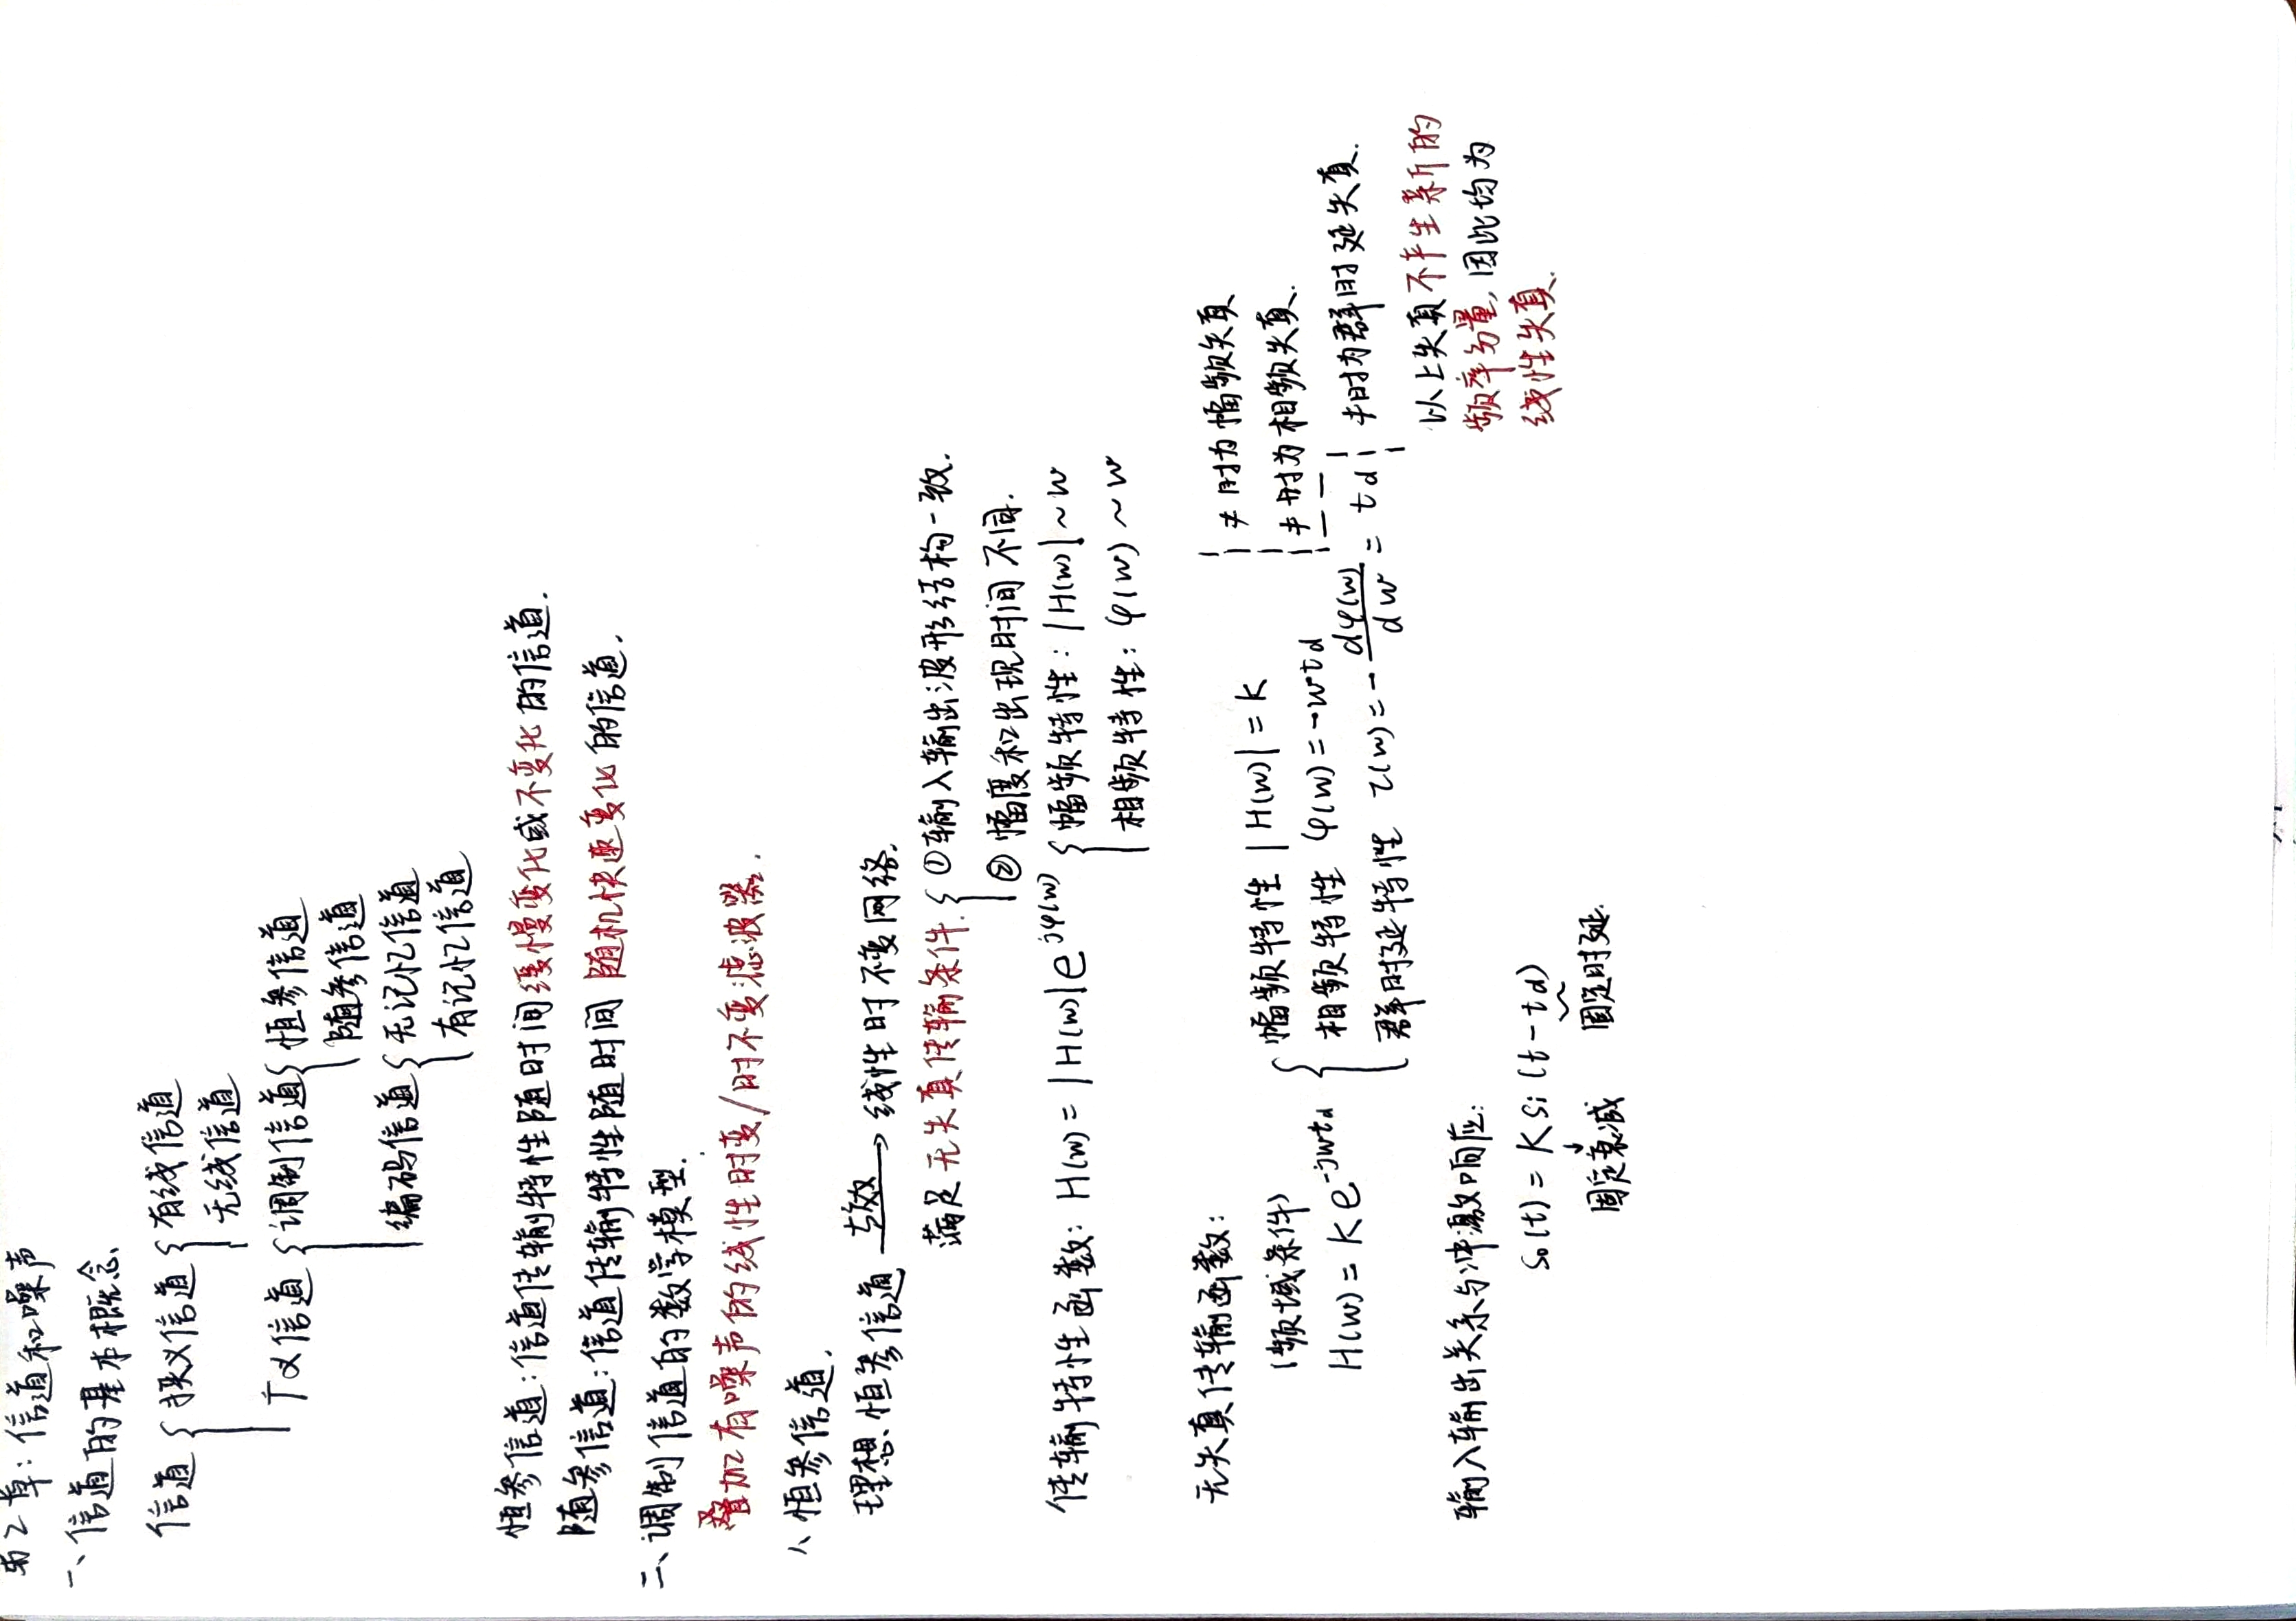 第2章：信道和噪声
一、信道的基本概念
信道 { 狭义信道 { 有线信道
无线信道
广义信道 { 调制信道 { 恒参信道
随参信道
编码信道 { 无记忆信道
有记忆信道
恒参信道：信道传输特性随时间缓慢变化或不变化的信道.
随参信道：信道传输特性随时间随机快速变化的信道.
二、调制信道的数学模型.
叠加有噪声的线性时变/时不变滤波器.
1、恒参信道.
理想恒参信道 —等效→ 线性时不变网络.
满足无失真传输条件. { ①输入输出波形结构一致.
②幅度和出现时间不同.
传输特性函数：H(w) = |H(w)|e^{jφ(w)} { 幅频特性：|H(w)|~w
相频特性：φ(w)~w
无失真传输函数：
(频域条件)
H(w) = Ke^{-jwtd} { 幅频特性 |H(w)| = K ≠时为幅频失真
相频特性 φ(w) = -wtd ≠时为相频失真.
群时延特性 τ(w) = -dφ(w)/dw = td ≠时为群时延失真.
以上失真不产生新的
频率分量，因此均为
线性失真.
输入输出关系与冲激响应：
So(t) = KSi(t-td)
固定衰减 固定时延.